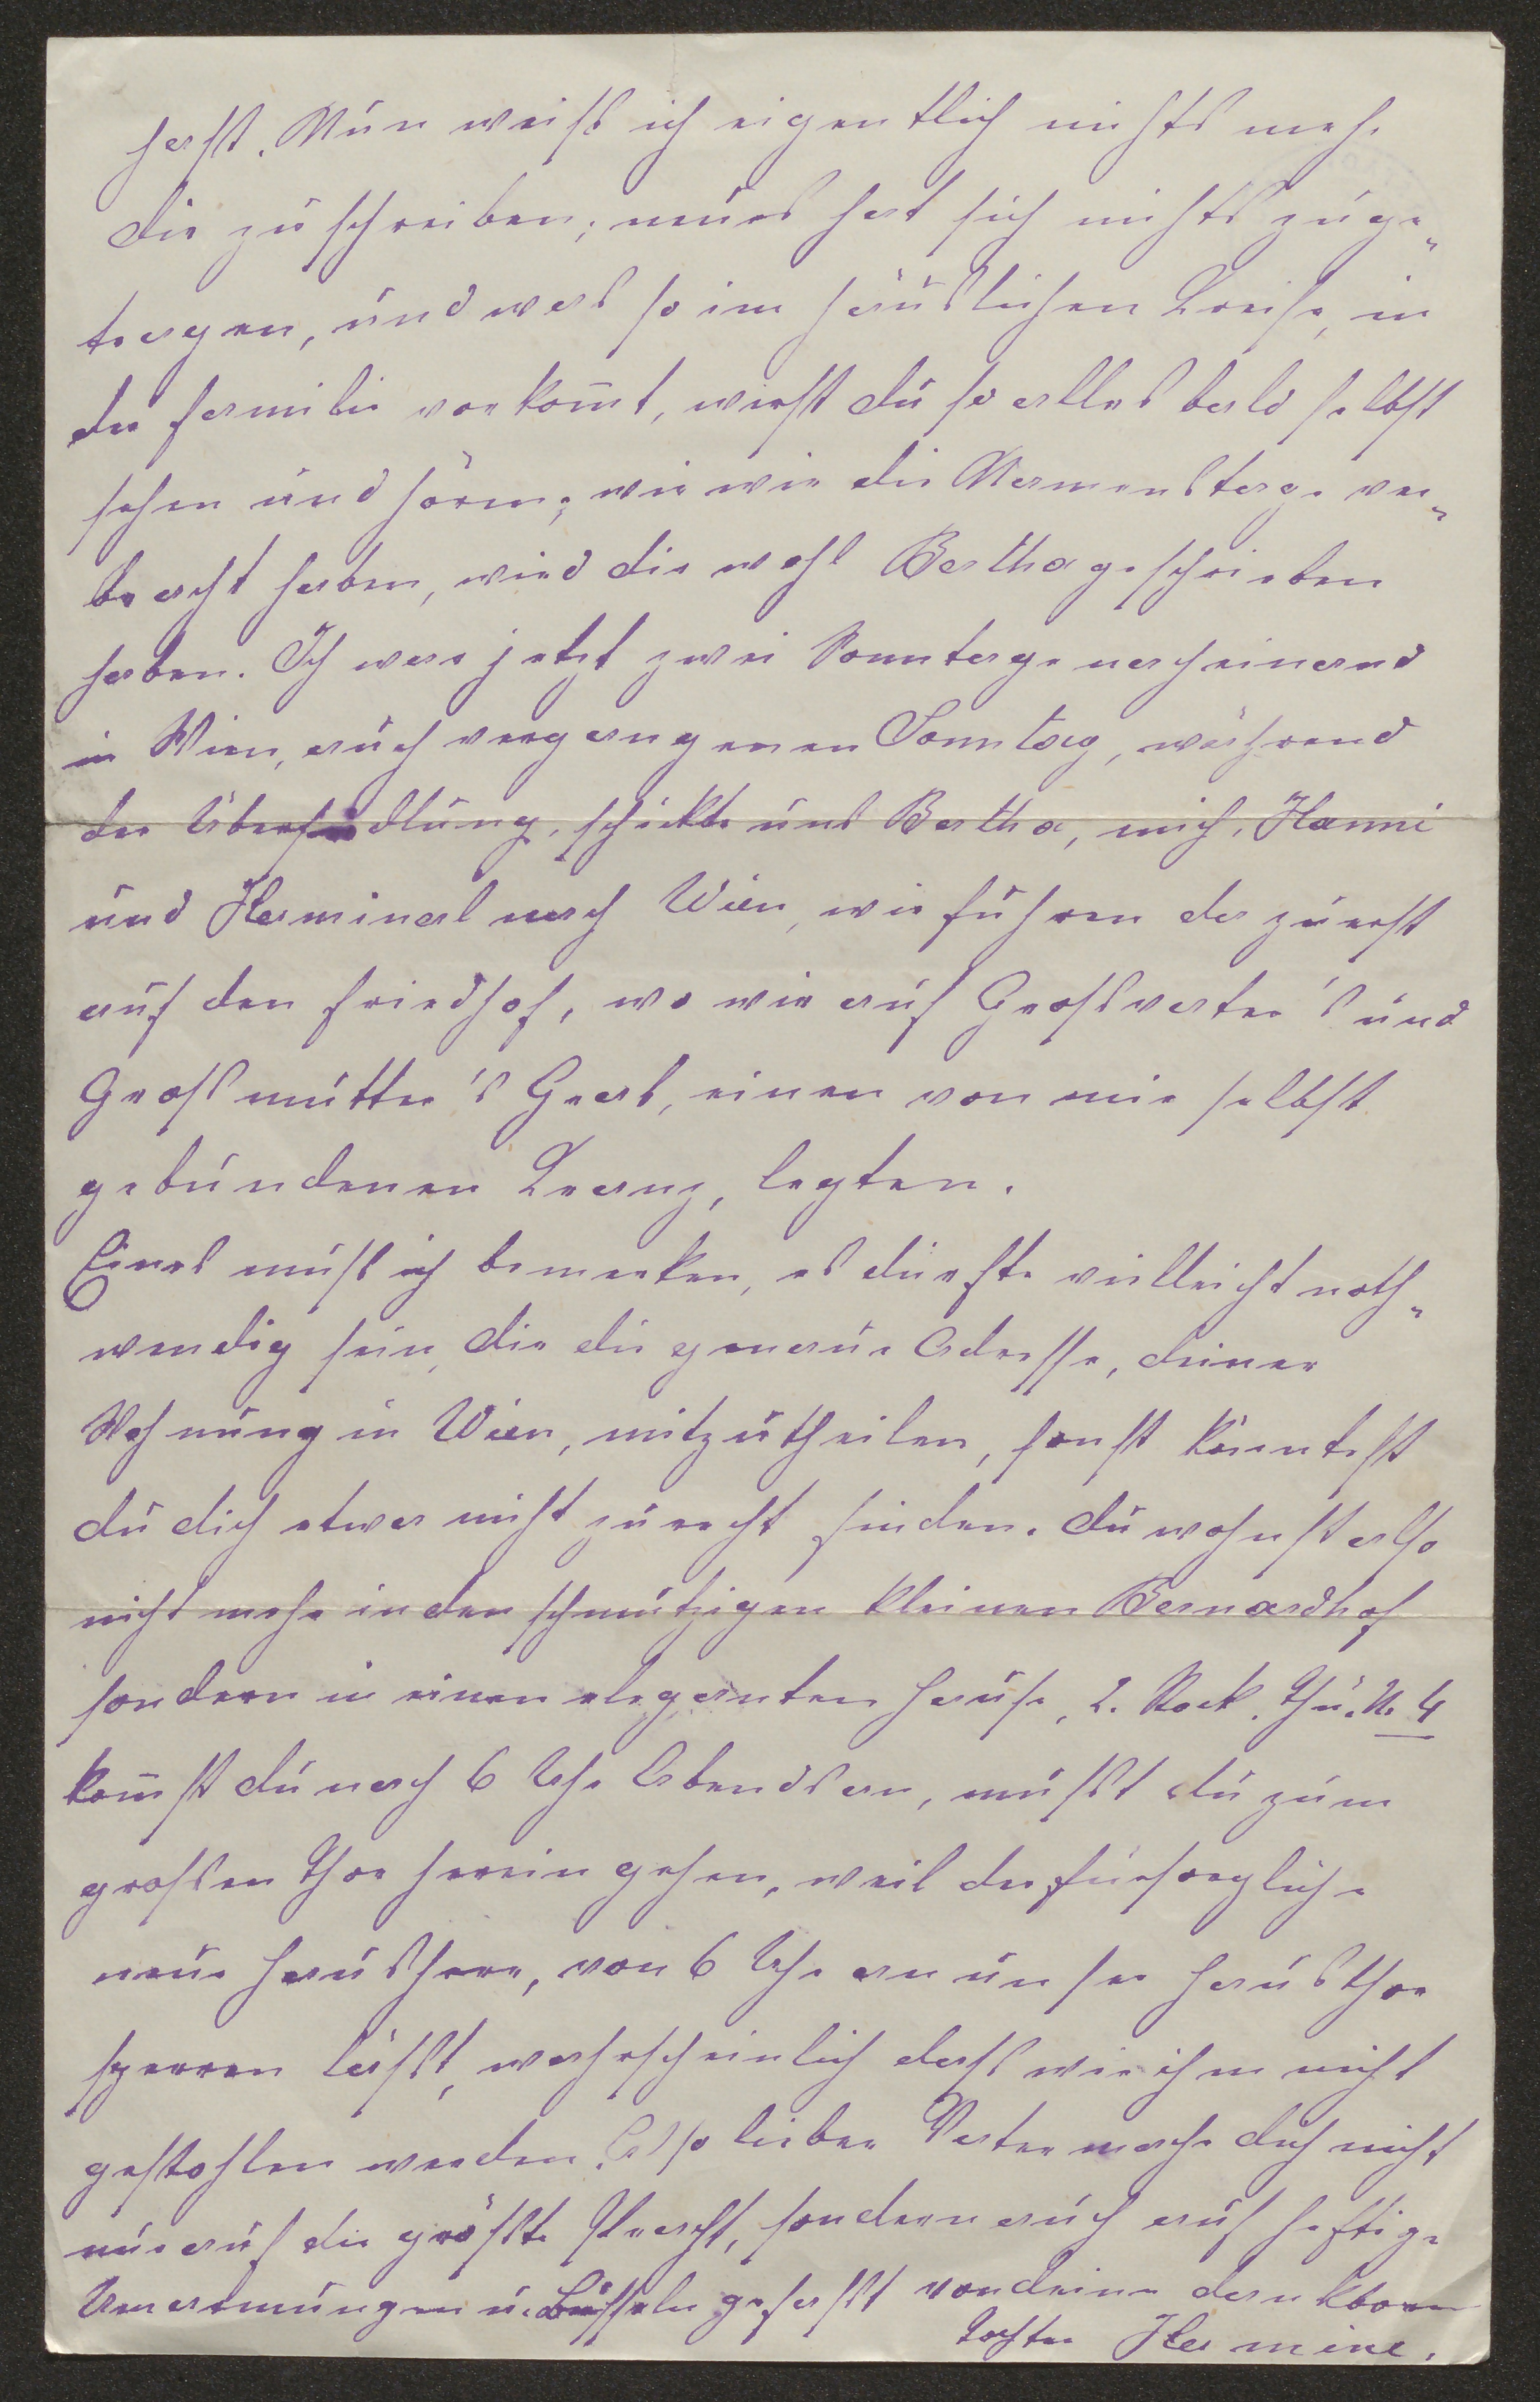 hast. Nun weiß ich eigentlich nichts mehr
dir zu schreiben; neues hat sich nichts zuge-
tragen, und was so im häuslichen Kreise, in
der Familie vorkom̄t, wirst du ja alles bald selbst
sehen und hören; wie wir die Namenstage ver-
bracht haben, wird dir wohl Bertha geschrieben
haben. Ich war jetzt zwei Sonntage nacheinand
in Wien, auch vergangenen Sonntag, während
der Übersiedlung, schickte uns Bertha, mich, Hanni
und Herminerl nach Wien, wir fuhren da zuerst
auf den Friedhof, wo wir auf Großvater's und
Großmutter's Grab, einen von mir selbst
gebundenen Kranz, legten.
Eines muß ich bemerken, es dürfte vielleicht noth-
wendig sein, dir die genaue Adresse, deiner
Wohnung in Wien, mitzutheilen, sonst könntest
du dich etwa nicht zurecht finden. Du wohnst also
nicht mehr in den schmutzigen kleinen Bernardhof
sondern in einen eleganten Hause, 2. Stock. Thür N. 4
kom̄st du nach 6 Uhr Abends an, mußt du zum
großen Thor herein gehen, weil der fürsorgliche
neue Hausherr, von 6 Uhr an unser Hausthor
sperren läßt, wahrscheinlich daß wir ihm nicht
gestohlen werden. Also lieber Vater mache dich nicht
nur auf die größte Pracht, sondern auch auf heftige
Umarmungen u. Busseln gefaßt von deiner dankbaren
Tochter Hermine.